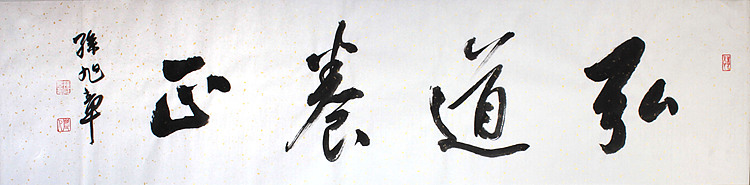 弘道養正
孫旭章